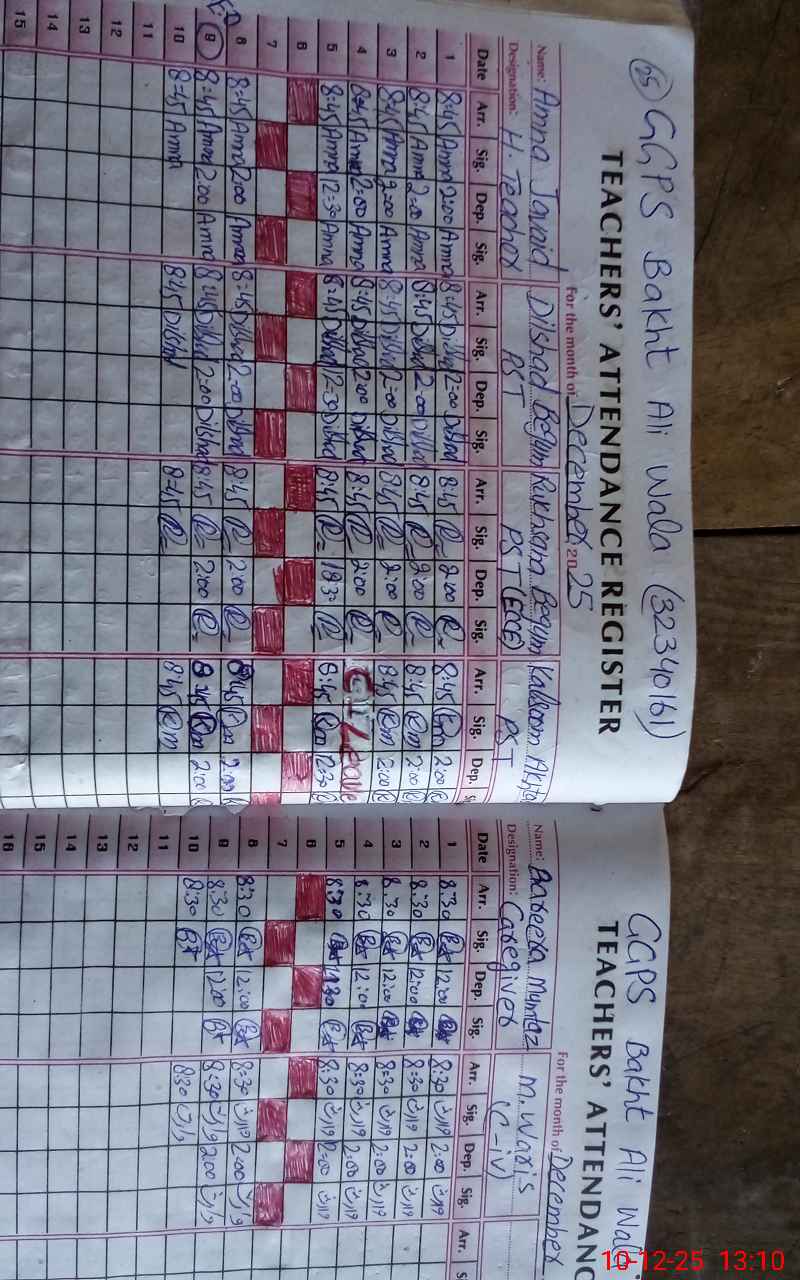 65 GGPS Bakht Ali Wala (32340161)
TEACHERS' ATTENDANCE REGISTER
For the month of December 2025
Name: Amna Javaid Dilshad Begum Rukhsana Begum Kalsoom Akhtar
Designation: H. Teacher PST PST (ECE) PST
Date Arr. Sig. Dep. Sig. Arr. Sig. Dep. Sig. Arr. Sig. Dep. Sig. Arr. Sig. Dep.
1 8:45 Amna 2:00 Amna 8:45 Dilshad 2:00 Dilshad 8:45 R 2:00 R 8:45 Km 2:00
2 8:45 Amna 2:00 Amna 8:45 Dilshad 2:00 Dilshad 8:45 R 2:00 R 8:45 Km 2:00
3 8:45 Amna 2:00 Amna 8:45 Dilshad 2:00 Dilshad 8:45 R 2:00 R 8:45 Km 2:00
4 8:45 Amna 2:00 Amna 8:45 Dilshad 2:00 Dilshad 8:45 R 2:00 R Leave
5 8:45 Amna 12:30 Amna 8:45 Dilshad 12:30 Dilshad 8:45 R R 8:45 Km 12:30
6
7
8 8:45 Amna 2:00 Amna 8:45 Dilshad 2:00 Dilshad 8:45 R 2:00 R 8:45 Km 2:00
9 8:45 Amna 2:00 Amna 8:45 Dilshad 2:00 Dilshad 8:45 R 2:00 R 8:45 Km 2:00
10 8:45 Amna 8:45 Dilshad 8:45 R 8:45 Km
11
12
13
14
15
GGPS Bakht Ali Wala
TEACHERS' ATTENDANC
For the month of December
Name: Mumtaz M. Waris
Designation: Caregiver (C-iv)
Date Arr. Sig. Dep. Sig. Arr. Sig. Dep. Sig. Arr.
1 8:30 12:00 8:30 2:00
2 8:30 12:00 8:30 2:00
3 8:30 12:00 8:30 2:00
4 8:30 12:00 8:30 2:00
5 8:30 8:30
6
7
8 8:30 12:00 8:30 2:00
9 8:30 12:00 8:30 2:00
10 8:30 8:30
11
12
13
14
15
16
10-12-25 13:10